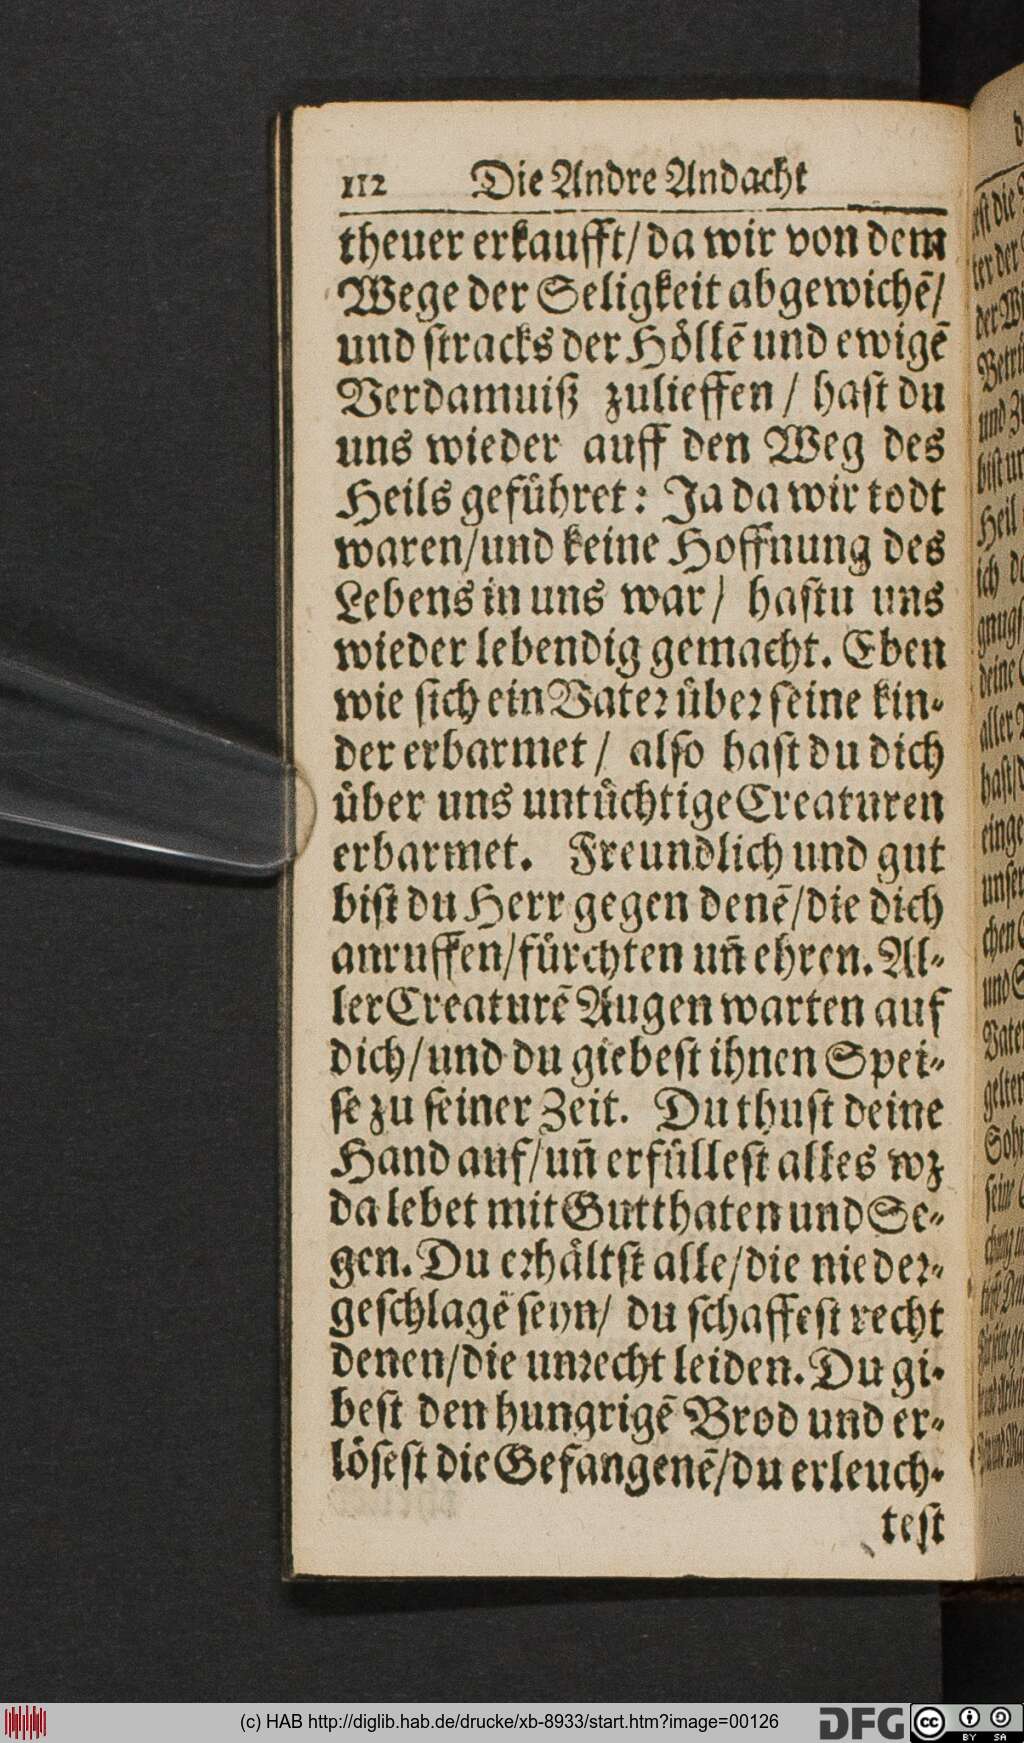 112 Die Andre Andacht
theuer erkaufft/ da wir von dem
Wege der Seligkeit abgewichẽ/
und stracks der Höllẽ und ewigẽ
Verdamuiß zulieffen / hast du
uns wieder auff den Weg des
Heils geführet: Ja da wir todt
waren/und keine Hoffnung des
Lebens in uns war/ hastu uns
wieder lebendig gemacht. Eben
wie sich ein Vater über seine kin-
der erbarmet / also hast du dich
über uns untüchtige Creaturen
erbarmet. Freundlich und gut
bist du Herr gegen denẽ/die dich
anruffen/fürchten uñ ehren. Al-
ler Creaturẽ Augen warten auf
dich/und du giebest ihnen Spei-
se zu seiner Zeit. Du thust deine
Hand auf/uñ erfüllest alles wz
da lebet mit Gutthaten und Se-
gen. Du erhältst alle/die nieder-
geschlagẽ seyn/ du schaffest recht
denen/die unrecht leiden. Du gi-
best den hungrigẽ Brod und er-
lösest die Gefangenẽ/du erleuch-
test
(c) HAB http://diglib.hab.de/drucke/xb-8933/start.htm?image=00126
DFG
cc BY SA